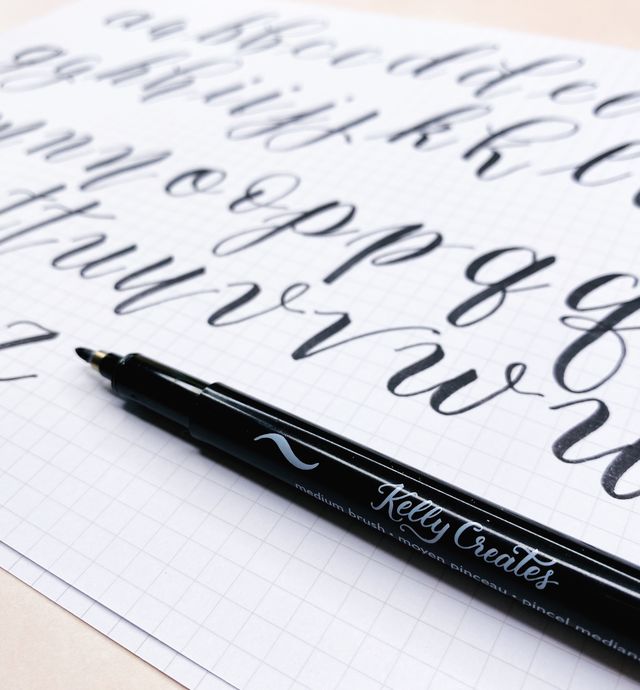 a a b b c c d d e e
g g h h i i j j k k l
n n o o p p q q
t t u u v v w w
z
Kelly Creates
medium brush • moyen pinceau • pincel mediano